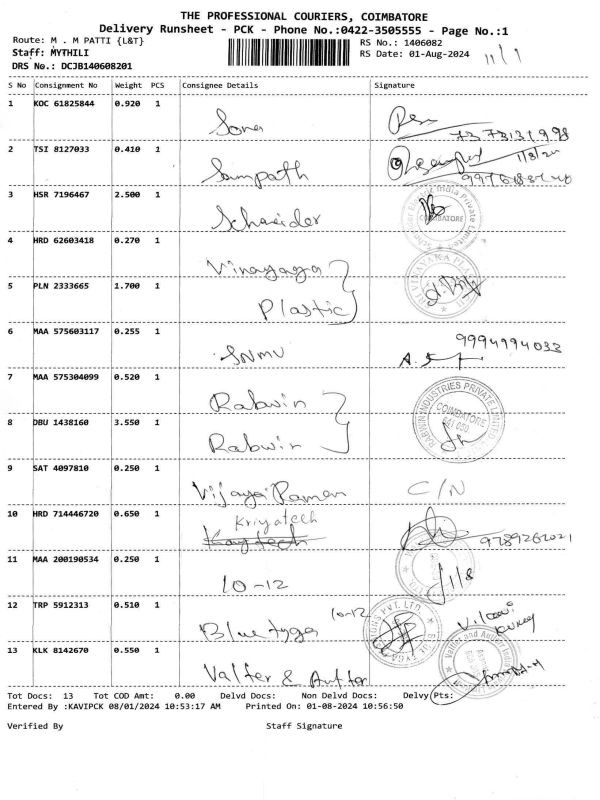 THE PROFESSIONAL COURIERS, COIMBATORE
Delivery Runsheet - PCK - Phone No.:0422-3505555 - Page No.:1
Route: M . M PATTI {L&T} RS No.: 1406082
Staff: MYTHILI RS Date: 01-Aug-2024
DRS No.: DCJB140608201
S No Consignment No Weight PCS Consignee Details Signature
1 KOC 61825844 0.920 1 Sona
7373131998
2 TSI 8127033 0.410 1 Sampath 1/8/24
3 HSR 7196467 2.500 1 Schneider COIMBATORE
4 HRD 62603418 0.270 1 Vinayaga
5 PLN 2333665 1.700 1 Plastic
6 MAA 575603117 0.255 1 SNMV 9994994033
7 MAA 575304099 0.520 1 Rabwin RABWIN INDUSTRIES PRIVATE LIMITED
COIMBATORE
8 DBU 1438160 3.550 1 Rabwin
9 SAT 4097810 0.250 1 Vijaya Raman C/N
10 HRD 714446720 0.650 1 Kriyatech
9789262021
11 MAA 200190534 0.250 1 10-12 1/8
12 TRP 5912313 0.510 1 10-12
13 KLK 8142670 0.550 1 Valter &
Tot Docs: 13 Tot COD Amt: 0.00 Delvd Docs: Non Delvd Docs: Delvy Pts:
Entered By :KAVIPCK 08/01/2024 10:53:17 AM Printed On: 01-08-2024 10:56:50
Verified By Staff Signature